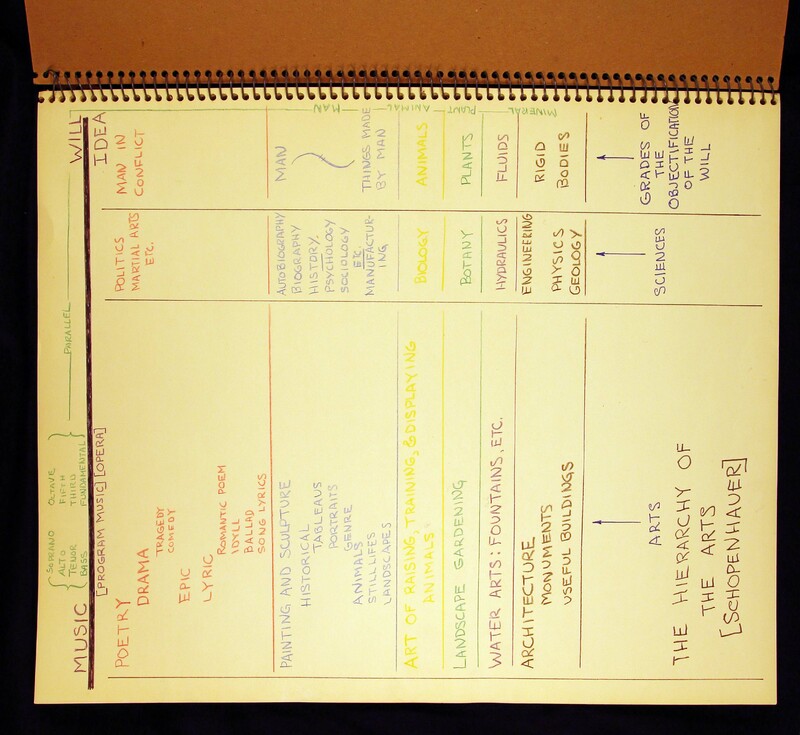 SOPRANO OCTAVE
ALTO FIFTH
TENOR THIRD
BASS FUNDAMENTAL
PARALLEL
MUSIC WILL
[PROGRAM MUSIC] [OPERA] IDEA
POETRY POLITICS MAN IN
DRAMA MARTIAL ARTS CONFLICT
TRAGEDY ETC.
COMEDY
EPIC
LYRIC
ROMANTIC POEM
IDYLL
BALLAD
SONG LYRICS
PAINTING AND SCULPTURE AUTOBIOGRAPHY MAN
HISTORICAL BIOGRAPHY
TABLEAUS HISTORY.
PORTRAITS PSYCHOLOGY
GENRE SOCIOLOGY
ANIMALS ETC.
STILL LIFES MANUFACTUR- THINGS MADE
LANDSCAPES ING BY MAN
ART OF RAISING, TRAINING, & DISPLAYING BIOLOGY ANIMALS
ANIMALS
LANDSCAPE GARDENING BOTANY PLANTS
WATER ARTS: FOUNTAINS, ETC. HYDRAULICS FLUIDS
ARCHITECTURE ENGINEERING RIGID
MONUMENTS PHYSICS BODIES
USEFUL BUILDINGS GEOLOGY
MAN ANIMAL PLANT MINERAL
ARTS SCIENCES GRADES OF
THE
OBJECTIFICATION
OF THE
WILL
THE HIERARCHY OF
THE ARTS
[SCHOPENHAUER]